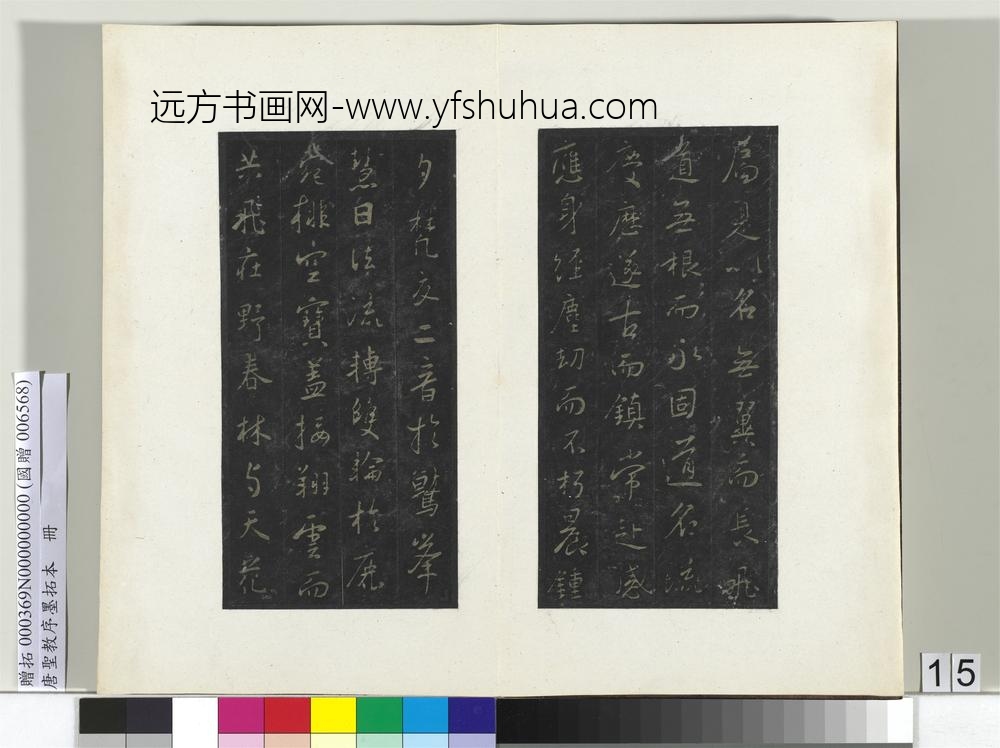 远方书画网-www.yfshuhua.com
爲是以名無翼而長飛
道無根而永固道名流
慶歷遂古而鎮常赴感
應身經塵劫而不朽晨鍾
夕梵交二音於鷲峯
慧日法流轉雙輪於鹿
菀排空寶蓋接翔雲而
共飛莊野春林与天花
贈拓 000369N000000000 (國贈 006568)
唐聖教序墨拓本 冊
15